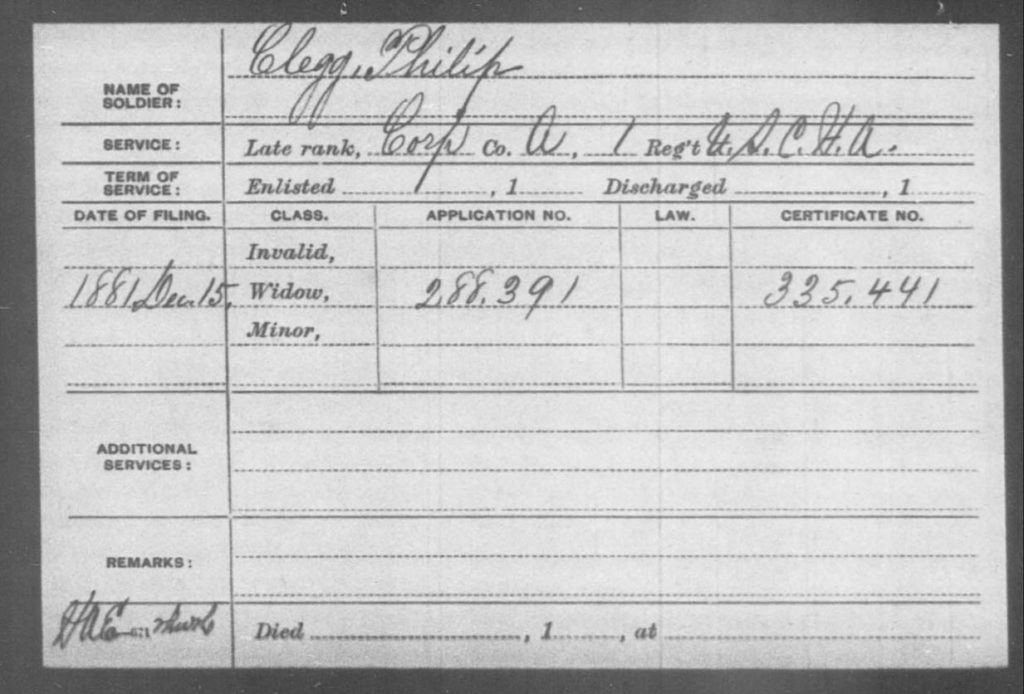 Clegg, Philip
NAME OF
SOLDIER:
SERVICE: Late rank, Corp Co. A, 1 Reg't U. S. C. H. A.
TERM OF
SERVICE: Enlisted , 1 Discharged , 1
DATE OF FILING. CLASS. APPLICATION NO. LAW. CERTIFICATE NO.
Invalid,
1881 Dec. 15, Widow, 288.391 335.441
Minor,
ADDITIONAL
SERVICES:
REMARKS:
Died , 1 , at